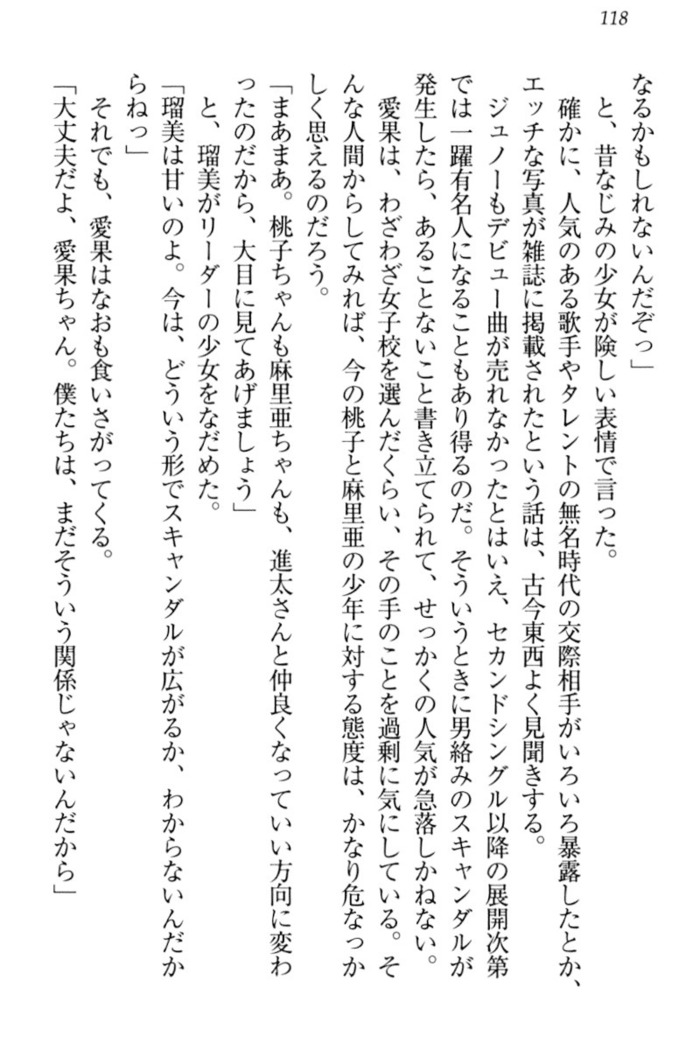 118
なるかもしれないんだぞっ」
　と、昔なじみの少女が険しい表情で言った。
　確かに、人気のある歌手やタレントの無名時代の交際相手がいろいろ暴露したとか、
エッチな写真が雑誌に掲載されたという話は、古今東西よく見聞きする。
　ジュノーもデビュー曲が売れなかったとはいえ、セカンドシングル以降の展開次第
では一躍有名人になることもあり得るのだ。そういうときに男絡みのスキャンダルが
発生したら、あることないこと書き立てられて、せっかくの人気が急落しかねない。
　愛果は、わざわざ女子校を選んだくらい、その手のことを過剰に気にしている。そ
んな人間からしてみれば、今の桃子と麻里亜の少年に対する態度は、かなり危なっか
しく思えるのだろう。
「まあまあ。桃子ちゃんも麻里亜ちゃんも、進太さんと仲良くなっていい方向に変わ
ったのだから、大目に見てあげましょう」
　と、瑠美がリーダーの少女をなだめた。
「瑠美は甘いのよ。今は、どういう形でスキャンダルが広がるか、わからないんだか
らねっ」
　それでも、愛果はなおも食いさがってくる。
「大丈夫だよ、愛果ちゃん。僕たちは、まだそういう関係じゃないんだから」